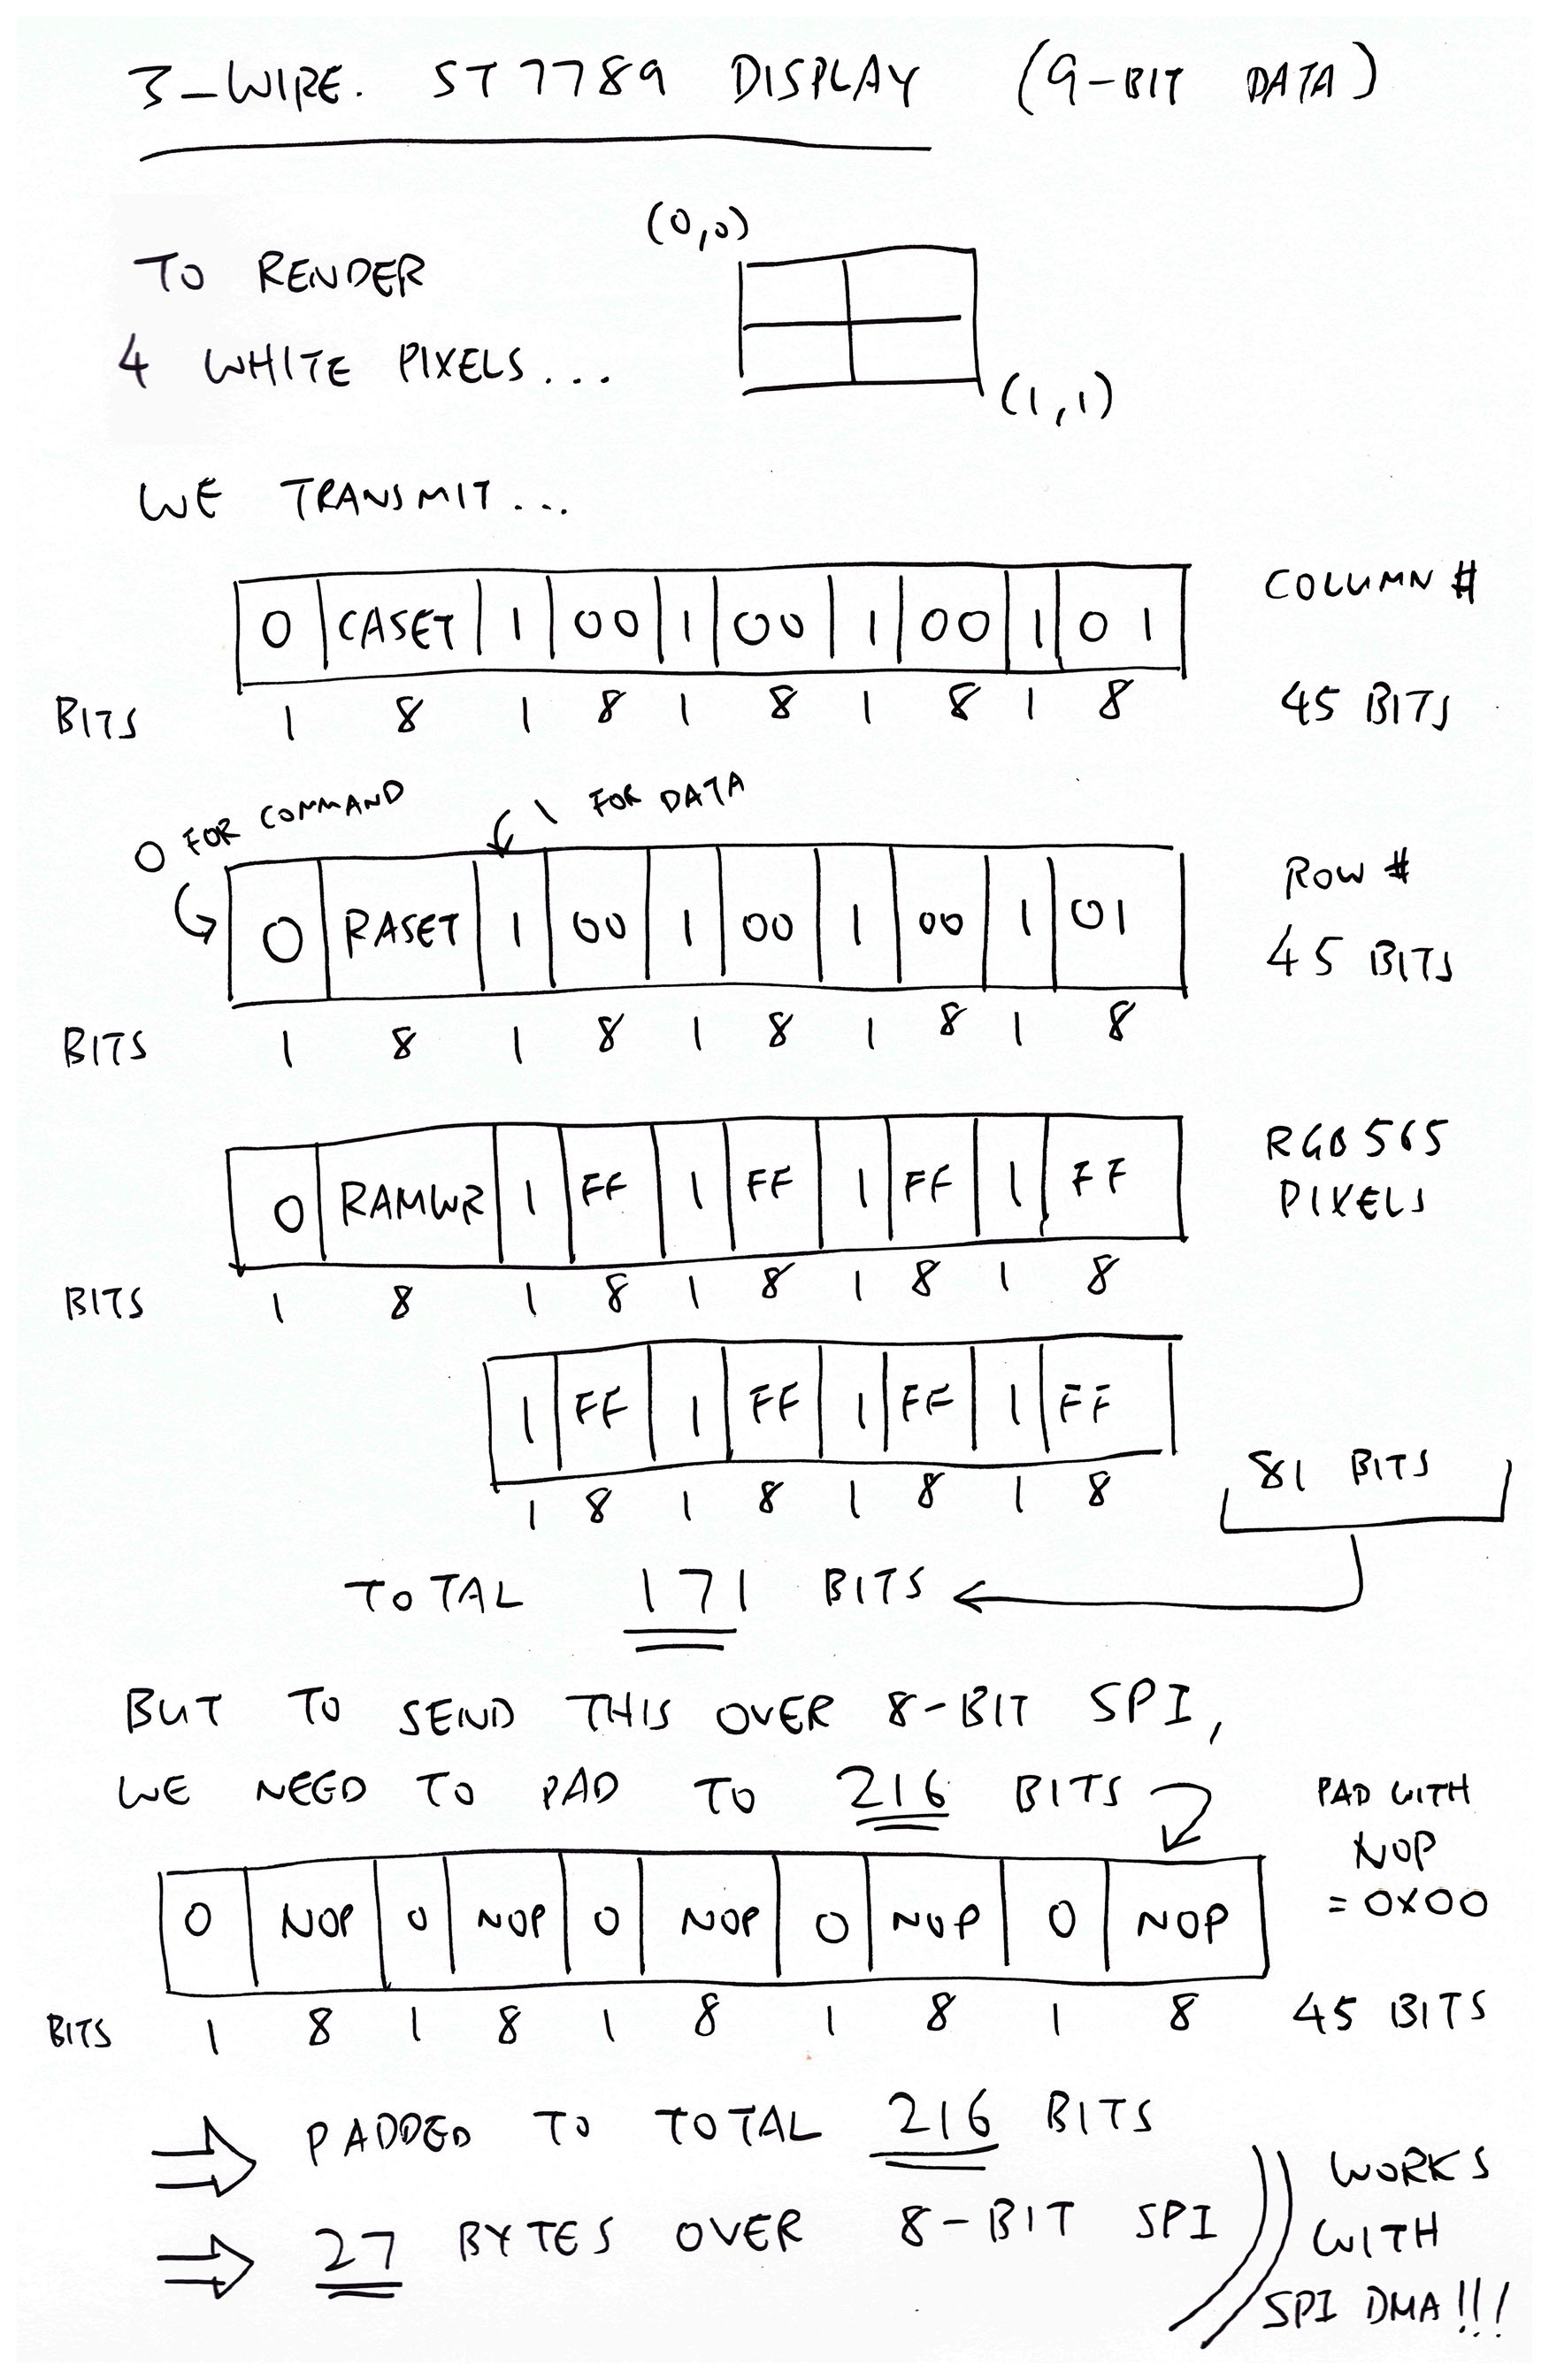 3-WIRE. ST7789 DISPLAY (9-BIT DATA)
(0,0)
TO RENDER
4 WHITE PIXELS...
(1,1)
WE TRANSMIT...
0 CASET 1 00 1 00 1 00 1 01 COLUMN #
BITS 1 8 1 8 1 8 1 8 1 8 45 BITS
0 FOR COMMAND 1 FOR DATA
0 RASET 1 00 1 00 1 00 1 01 ROW #
45 BITS
BITS 1 8 1 8 1 8 1 8 1 8
0 RAMWR 1 FF 1 FF 1 FF 1 FF RGB565
PIXELS
BITS 1 8 1 8 1 8 1 8 1 8
1 FF 1 FF 1 FF 1 FF
1 8 1 8 1 8 1 8 81 BITS
TOTAL 171 BITS
BUT TO SEND THIS OVER 8-BIT SPI,
WE NEED TO PAD TO 216 BITS
PAD WITH
NOP
= 0x00
0 NOP 0 NOP 0 NOP 0 NOP 0 NOP
BITS 1 8 1 8 1 8 1 8 1 8 45 BITS
PADDED TO TOTAL 216 BITS
27 BYTES OVER 8-BIT SPI
WORKS
WITH
SPI DMA!!!